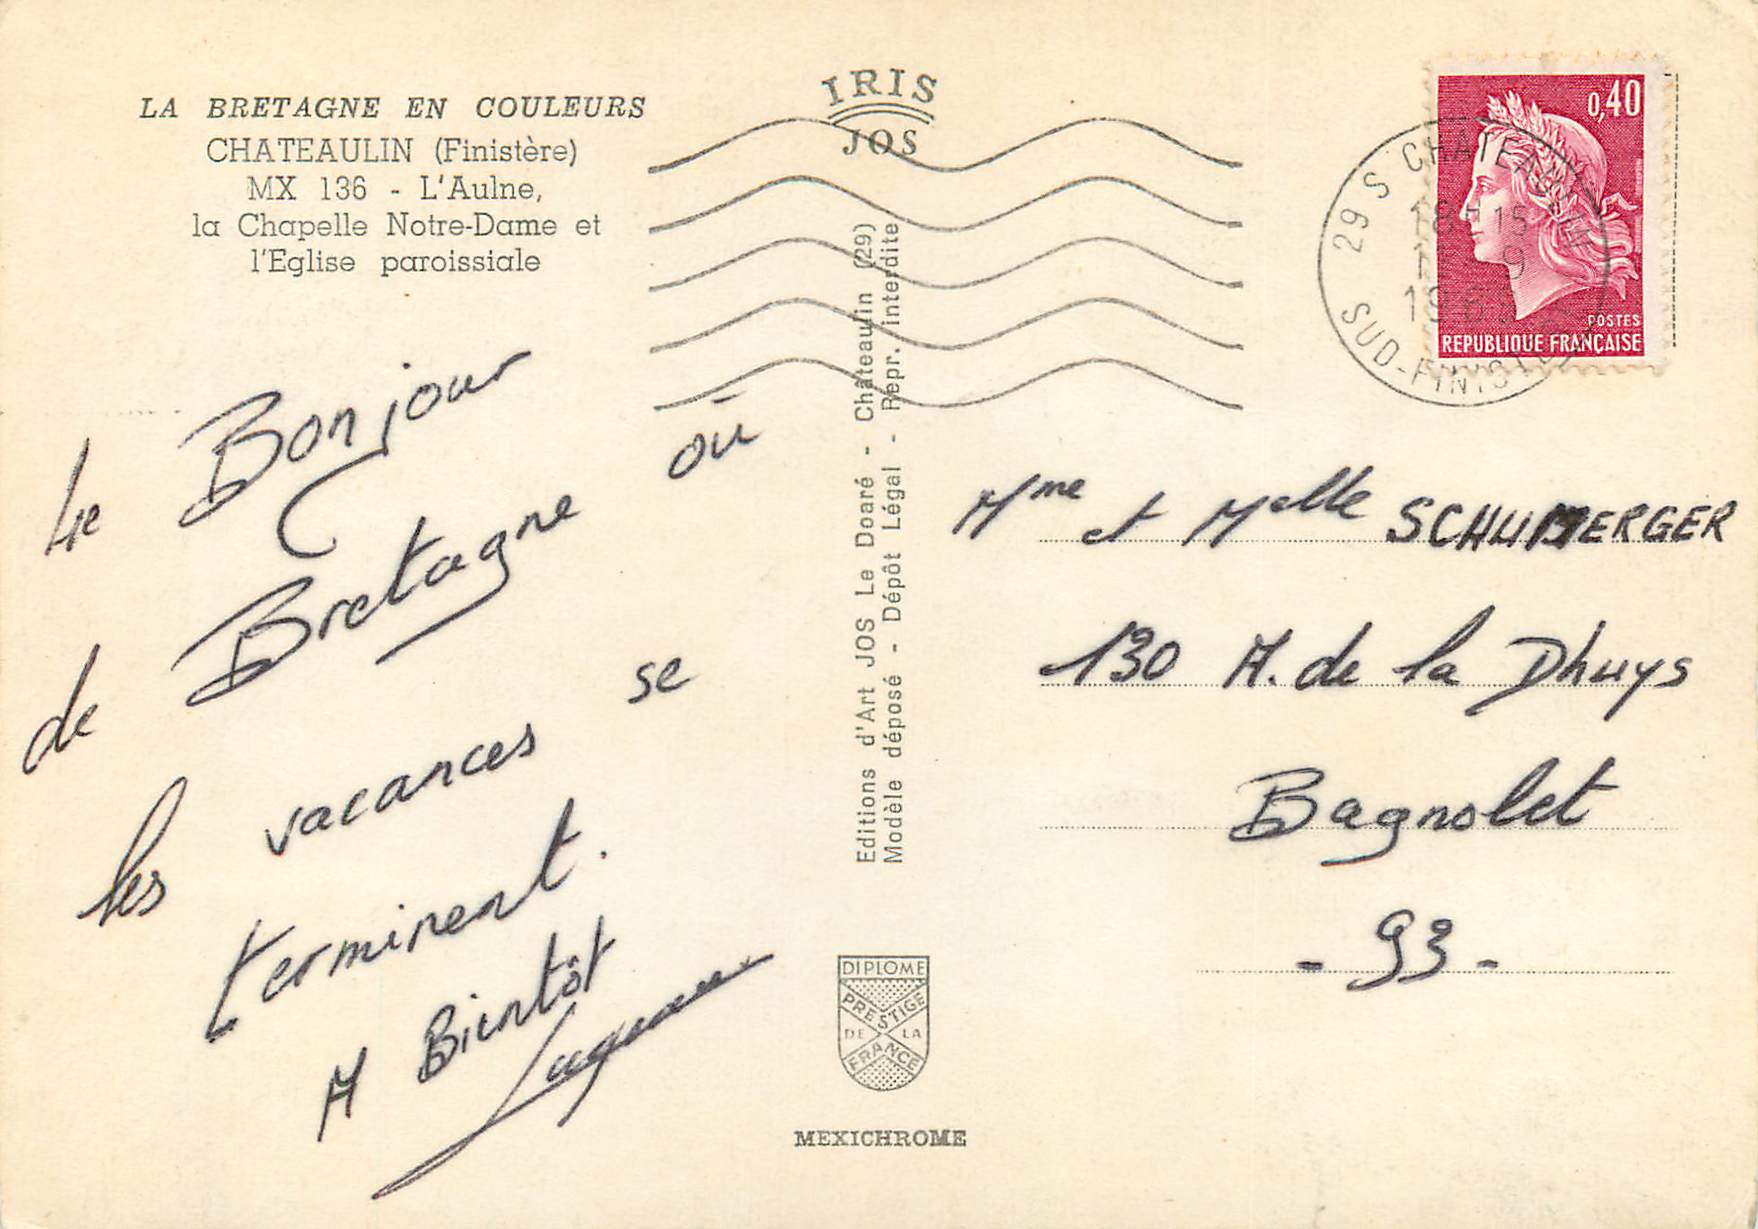 LA BRETAGNE EN COULEURS
CHATEAULIN (Finistère)
MX 136 - L'Aulne,
la Chapelle Notre-Dame et
l'Eglise paroissiale
IRIS
JOS
0,40
POSTES
REPUBLIQUE FRANÇAISE
29 S CHATEAULIN
18H15
9
SUD-FINISTERE
Le Bonjour
de Bretagne où
les vacances se
terminent.
A Bientôt
Editions d'Art JOS Le Doaré - Châteaulin (29)
Modèle déposé - Dépôt Légal - Repr. interdite
Mme et Melle SCHUMERGER
130 A. de la Dhuys
Bagnolet
- 93 -
DIPLOME
PRESTIGE
DE LA
FRANCE
MEXICHROME